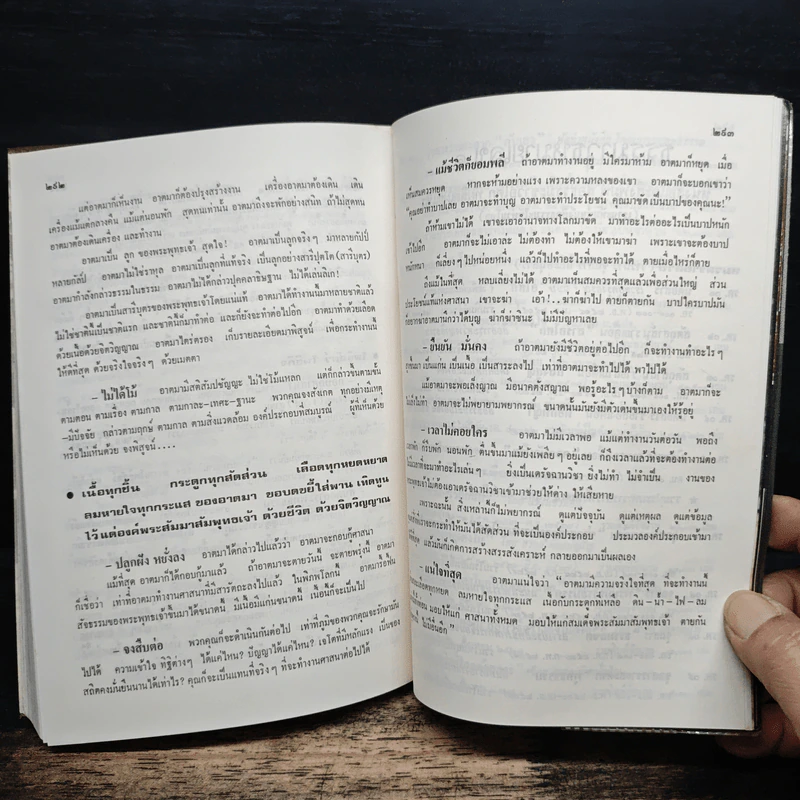 ๒๔๒
แต่อาตมาก็เห็นงาน อาตมาก็ต้องปรุงสร้างงาน เครื่องอาตมาต้องเดิน เดิน
เครื่องแม้แต่กลางคืน แม้แต่นอนพัก สุดทนเท่านั้น อาตมาถึงจะพักอย่างสนิท ถ้าไม่สุดทน
อาตมาต้องเดินเครื่อง และทำงาน
อาตมาเป็น ลูก ของพระพุทธเจ้า สุดใจ! อาตมาเป็นลูกจริงๆ มาหลายกัปป์
หลายกัลป์ อาตมาไม่ใช่ราหุล อาตมาเป็นลูกที่แท้จริง เป็นลูกอย่างสารีปุตโต (สารีบุตร)
อาตมากำลังกล่าวธรรมในธรรม อาตมาไม่ได้กล่าวปุคคลาธิษฐาน ไม่ได้เล่นลิเก!
อาตมาเป็นสารีบุตรของพระพุทธเจ้าโดยแน่แท้ อาตมาได้ทำงานนั้นมาหลายชาติแล้ว
ไม่ใช่ชาตินี้เป็นชาติแรก และชาตินี้ก็มาทำต่อ และก็ยังจะทำต่อไปอีก อาตมาทำด้วยเลือด
ด้วยเนื้อด้วยจิตวิญญาณ อาตมาไตร่ตรอง เก็บรายละเอียดมาพิสูจน์ เพื่อกระทำงานนั้น
ให้ดีที่สุด ด้วยจริงใจจริงๆ ด้วยเมตตา
– ไม่ได้โม้ อาตมามีสติสัมปชัญญะ ไม่ใช่โม้แหลก แต่ก็กล่าวขึ้นตามขั้น
ตามตอน ตามเรื่อง ตามกาล ตามกาละ-เทศะ-ฐานะ พวกคุณจงสังเกต ทุกอย่างมีเหตุ
-มีปัจจัย กล่าวตามฤกษ์ ตามกาล ตามสิ่งแวดล้อม องค์ประกอบที่สมบูรณ์ ผู้ที่เห็นด้วย
หรือไม่เห็นด้วย จงพิสูจน์....
● เนื้อทุกชิ้น กระดูกทุกสัดส่วน เลือดทุกหยดหยาด
ลมหายใจทุกกระแส ของอาตมา ขอบดขยี้ใส่พาน เทิดทูน
ไว้ แด่องค์พระสัมมาสัมพุทธเจ้า ด้วยชีวิต ด้วยจิตวิญญาณ
– ปลูกฝัง หยั่งลง อาตมาได้กล่าวไปแล้วว่า อาตมาจะกอบกู้ศาสนา
แม้ที่สุด อาตมาได้กอบกู้มาแล้ว ถ้าอาตมาจะตายวันนี้ จะตายพรุ่งนี้ อาตมา
ก็เชื่อว่า เท่าที่อาตมาทำงานศาสนาที่มีสารัตถะลงไปแล้ว ในพิภพโลกนี้ อาตมารื้อฟื้น
สัจธรรมของพระพุทธเจ้าขึ้นมาได้ขนาดนี้ มีเนื้อมีแก่นขนาดนี้ เนื้อก็จะเป็นไป
– จงสืบต่อ พวกคุณก็จะดำเนินกันต่อไป เท่าที่ภูมิของพวกคุณจะรักษามัน
ไปได้ ความเข้าใจ ทิฐิต่างๆ ได้แค่ไหน? ปัญญาได้แค่ไหน? เจโตที่มีหลักแรง เป็นของ
สถิตคงมั่นยืนนานได้เท่าไร? คุณก็จะเป็นแทนที่จริงๆ ที่จะทำงานศาสนาต่อไปได้
๒๔๓
– แม้ชีวิตก็ยอมพลี ถ้าอาตมาทำงานอยู่ มีใครมาห้าม อาตมาก็หยุด เมื่อ
เห็นสมควรหยุด หากจะห้ามอย่างแรง เพราะความหลงของเขา อาตมาก็จะบอกเขาว่า
"คุณอย่าทำบาปเลย อาตมาจะทำบุญ อาตมาจะทำประโยชน์ คุณมาขัด เป็นบาปของคุณนะ!"
ถ้าห้ามเขาไม่ได้ เขาจะเอาอำนาจทางโลกมาขัด มาทำอะไรต่ออะไรเป็นบาปหนัก
เข้าไปอีก อาตมาก็จะไม่เอาละ ไม่ต้องทำ ไม่ต้องให้เขามาฆ่า เพราะเขาจะต้องบาป
หนักหนา ก็เลี่ยงๆ ไปหน่อยหนึ่ง แล้วก็ไปทำอะไรที่พอจะทำได้ ตายเมื่อไหร่ก็ตาย
ถึงแม้ในที่สุด หลบเลี่ยงไม่ได้ อาตมาเห็นสมควรที่สุดแล้วเพื่อส่วนใหญ่ ส่วน
ประโยชน์แม้แต่ศาสนา เขาจะฆ่า เอ้า!..ฆ่าก็ฆ่าไป ตายก็ตายกัน บาปใครบาปมัน
ก็อยากฆ่าอาตมานึกว่าได้บุญ ก็ฆ่าก็ฆ่าซินะ ไม่มีปัญหาเลย
– ยืนยัน มั่นคง ถ้าอาตมายังมีชีวิตอยู่ต่อไปอีก ก็จะทำงานทำอะไรๆ
เป็นแก่น เป็นเนื้อ เป็นสาระลงไป เท่าที่อาตมาจะทำไปได้ พาไปได้
แม้อาตมาจะพอเล็งญาณ มีอนาคตังสญาณ พอรู้อะไรๆบ้างก็ตาม อาตมาก็จะ
ไม่ อาตมาจะไม่พยายามพยากรณ์ ขนาดนั้นมันยังมีตัวเดนขึ้นมาเองให้รู้อยู่
– เวลาไม่คอยใคร อาตมาไม่มีเวลาพอ แม้แต่ทำงานวันต่อวัน พอถึง
เวลาพัก ก็รีบพัก นอนพัก ตื่นขึ้นมาแม้ยังเพลียๆ อยู่เลย ก็ถึงเวลาแล้วที่จะต้องทำงานต่อ
ไม่มีเวลาที่จะมาทำอะไรเล่นๆ ยิ่งเป็นเดรัจฉานวิชา ยิ่งไม่ทำ ไม่จำเป็น งานของ
อาตมาก็ไม่ต้องเอาเดรัจฉานวิชาเข้ามาช่วยให้ต่าง ให้เสียหาย
เพราะฉะนั้น สิ่งเหล่านี้ก็ไม่พยากรณ์ ดูแต่ปัจจุบัน ดูแต่เหตุผล ดูแต่ข้อมูล
กระทำให้มันได้สัดส่วน ที่จะเป็นองค์ประกอบ ประมวลองค์ประกอบเข้ามา
แล้วมันก็เกิดการสร้างสรรสังเคราะห์ กลายออกมาเป็นผลเอง
– แน่ใจที่สุด อาตมาแน่ใจว่า "อาตมามีความจริงใจที่สุด ที่จะทำงานนี้
เลือดทุกหยด ลมหายใจทุกกระแส เนื้อกับกระดูกที่เหลือ ดิน-น้ำ-ไฟ-ลม
มอบให้แก่ ศาสนาทั้งหมด มอบให้แก่สมเด็จพระสัมมาสัมพุทธเจ้า ตายกัน
ไม่มีอื่นอีก"